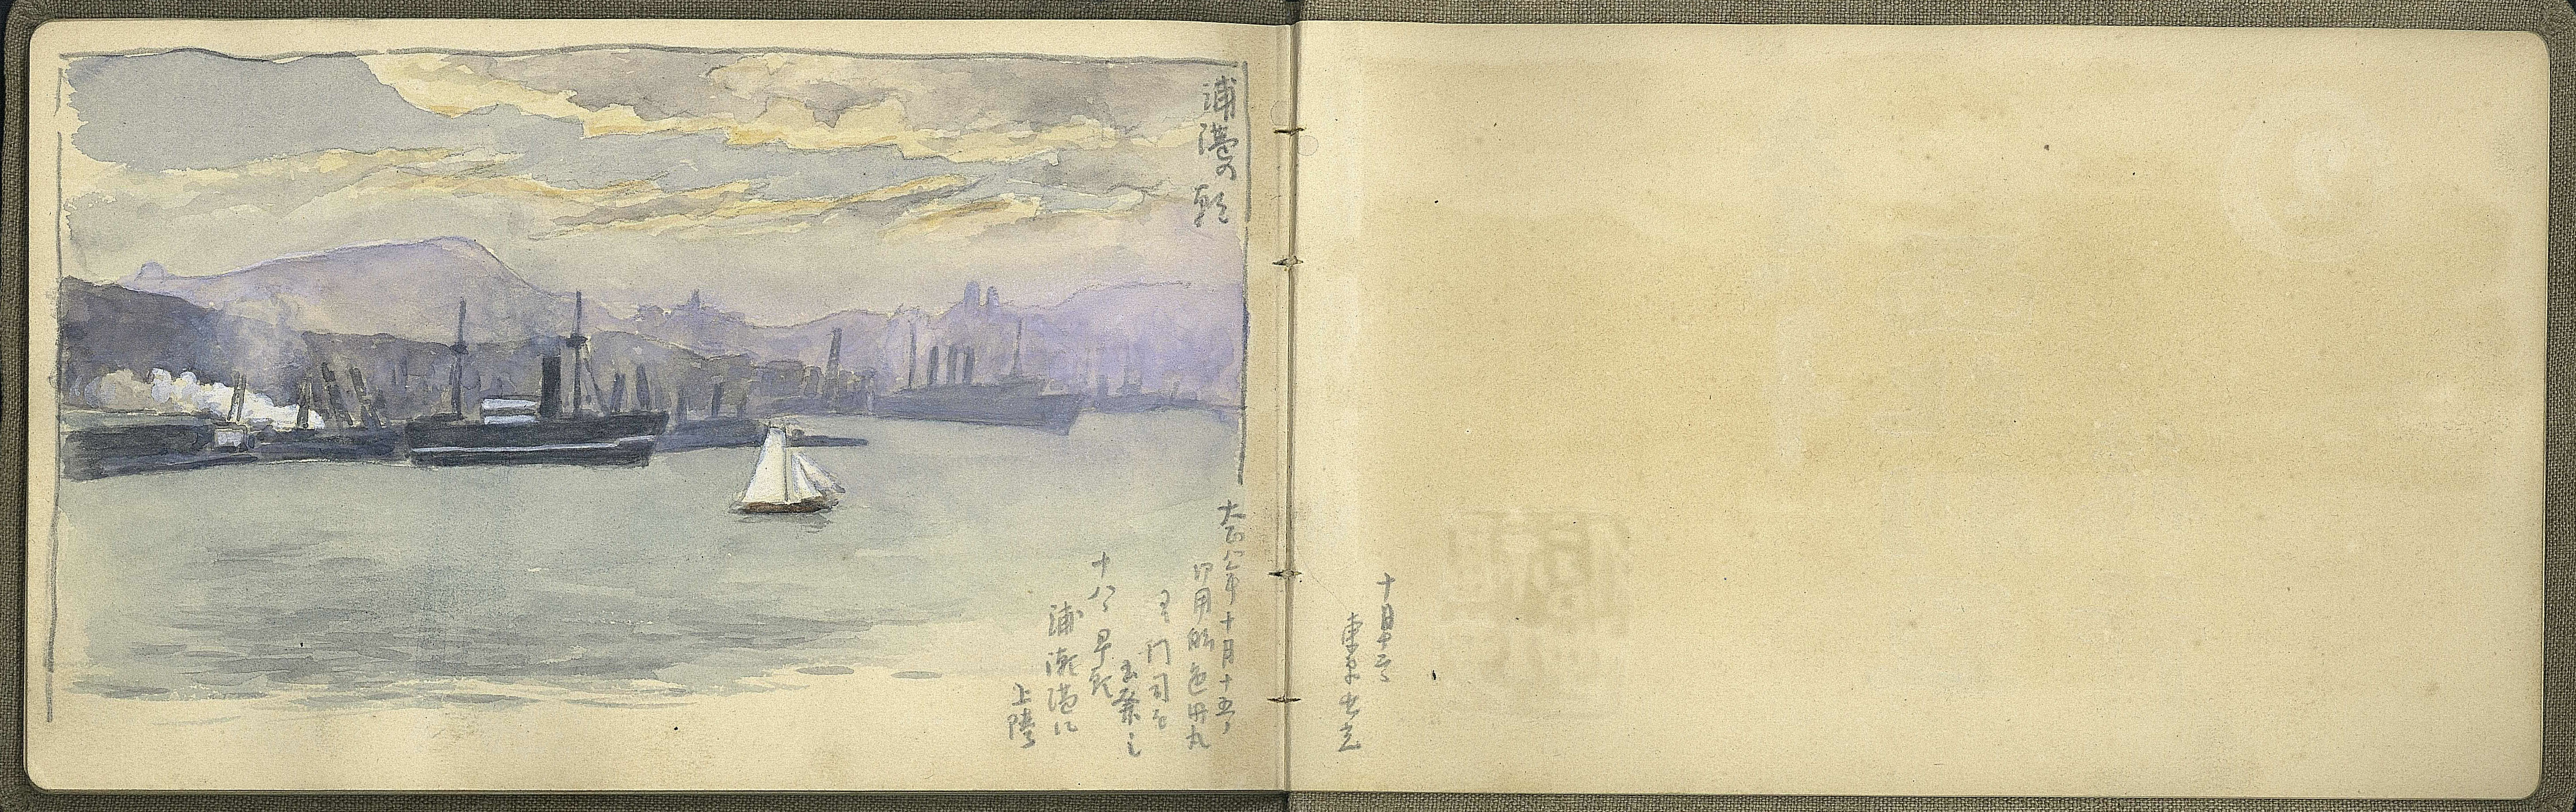 十月十三日
東京出立
浦港の朝
大正八年十月十五日
御用船色丹丸
門司を
出発し
十八日早朝
浦潮港に
上陸